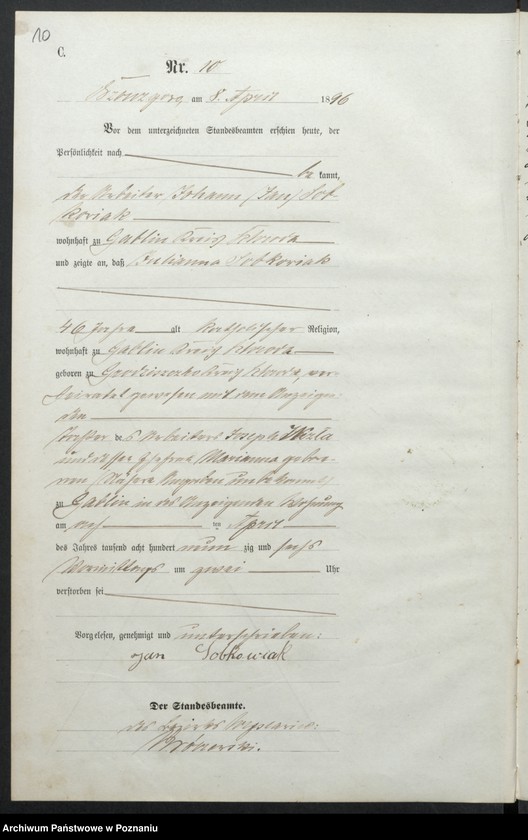 10
C.
Nr. 10
am 8. April 1896
Vor dem unterzeichneten Standesbeamten erschien heute, der
Persönlichkeit nach
be kannt,
der Arbeiter Johann (Jan) Sob
koviak
wohnhaft zu Gablin Kreis Schroda
und zeigte an, daß Julianna Sobkoviak
46 Jahre alt katholischer Religion,
wohnhaft zu Gablin Kreis Schroda
geboren zu Kreis Schroda, ver-
heiratet gewesen mit dem Anzeigen-
den
Tochter des Arbeiters Joseph
und dessen Ehefrau Marianna gebore-
nen (Nähere Angaben unbekannt)
zu Gablin in des Anzeigenden Wohnung
am ten April
des Jahres tausend acht hundert neun zig und sechs
Vormittags um zwei Uhr
verstorben sei
Vorgelesen, genehmigt und unterschrieben:
Jan Sobkowiak
Der Standesbeamte.
Archiwum Państwowe w Poznaniu